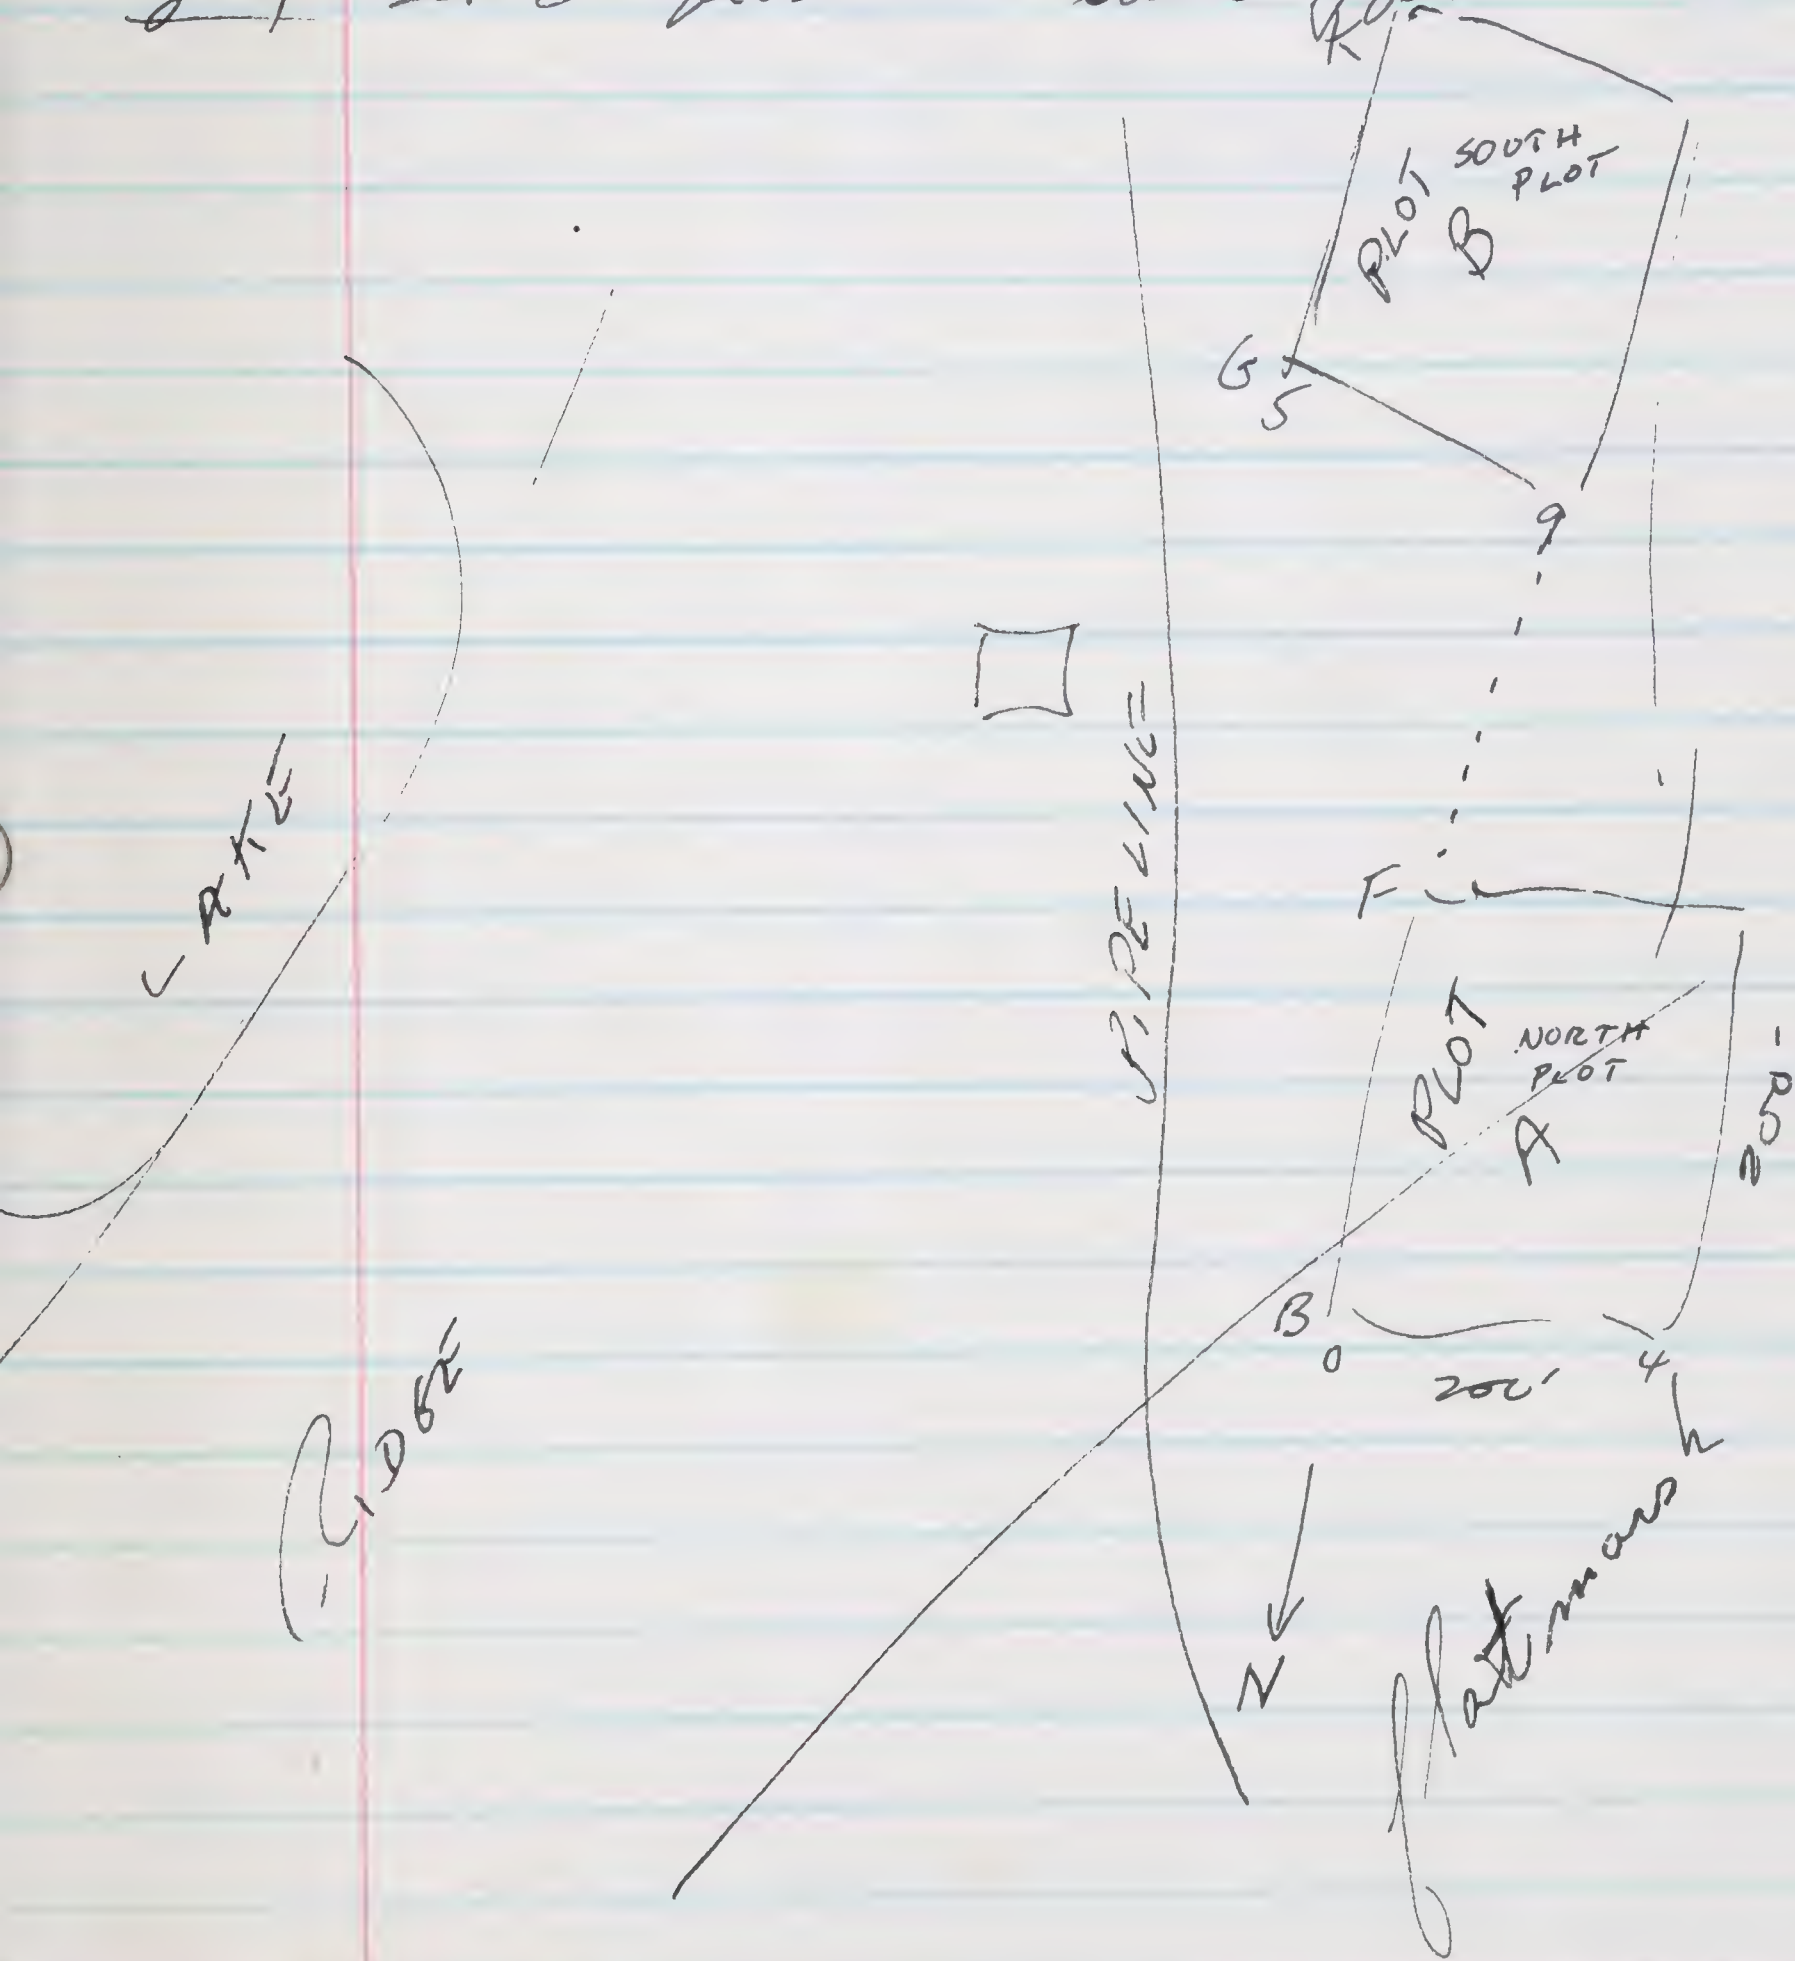 K
SOUTH
PLOT
PLOT
B
G
5
9
LAKE
PIPELINE
F
PLOT
NORTH
PLOT
A
250'
B
0
200'
4
RIDGE
N
flat marsh